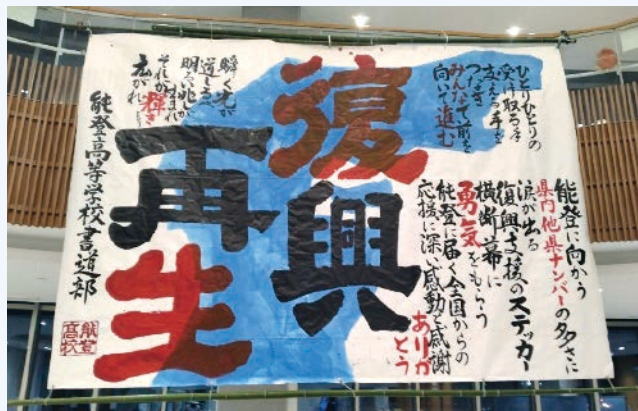 ひとりひとりの
受け取る手を
支える手を
つなぎ
みんなで前を
向いて進む
能登に向かう
県内他県ナンバーの多さに
涙が出る
復興支援のステッカー
横断幕に
勇気をもらう
能登に届く全国からの
応援に深い感動と感謝
ありがとう
復興
再生
輝く光が
道しるべ
明るい兆しが
生まれ
それが輝き
広がれ
能登高等学校書道部
能登
高校